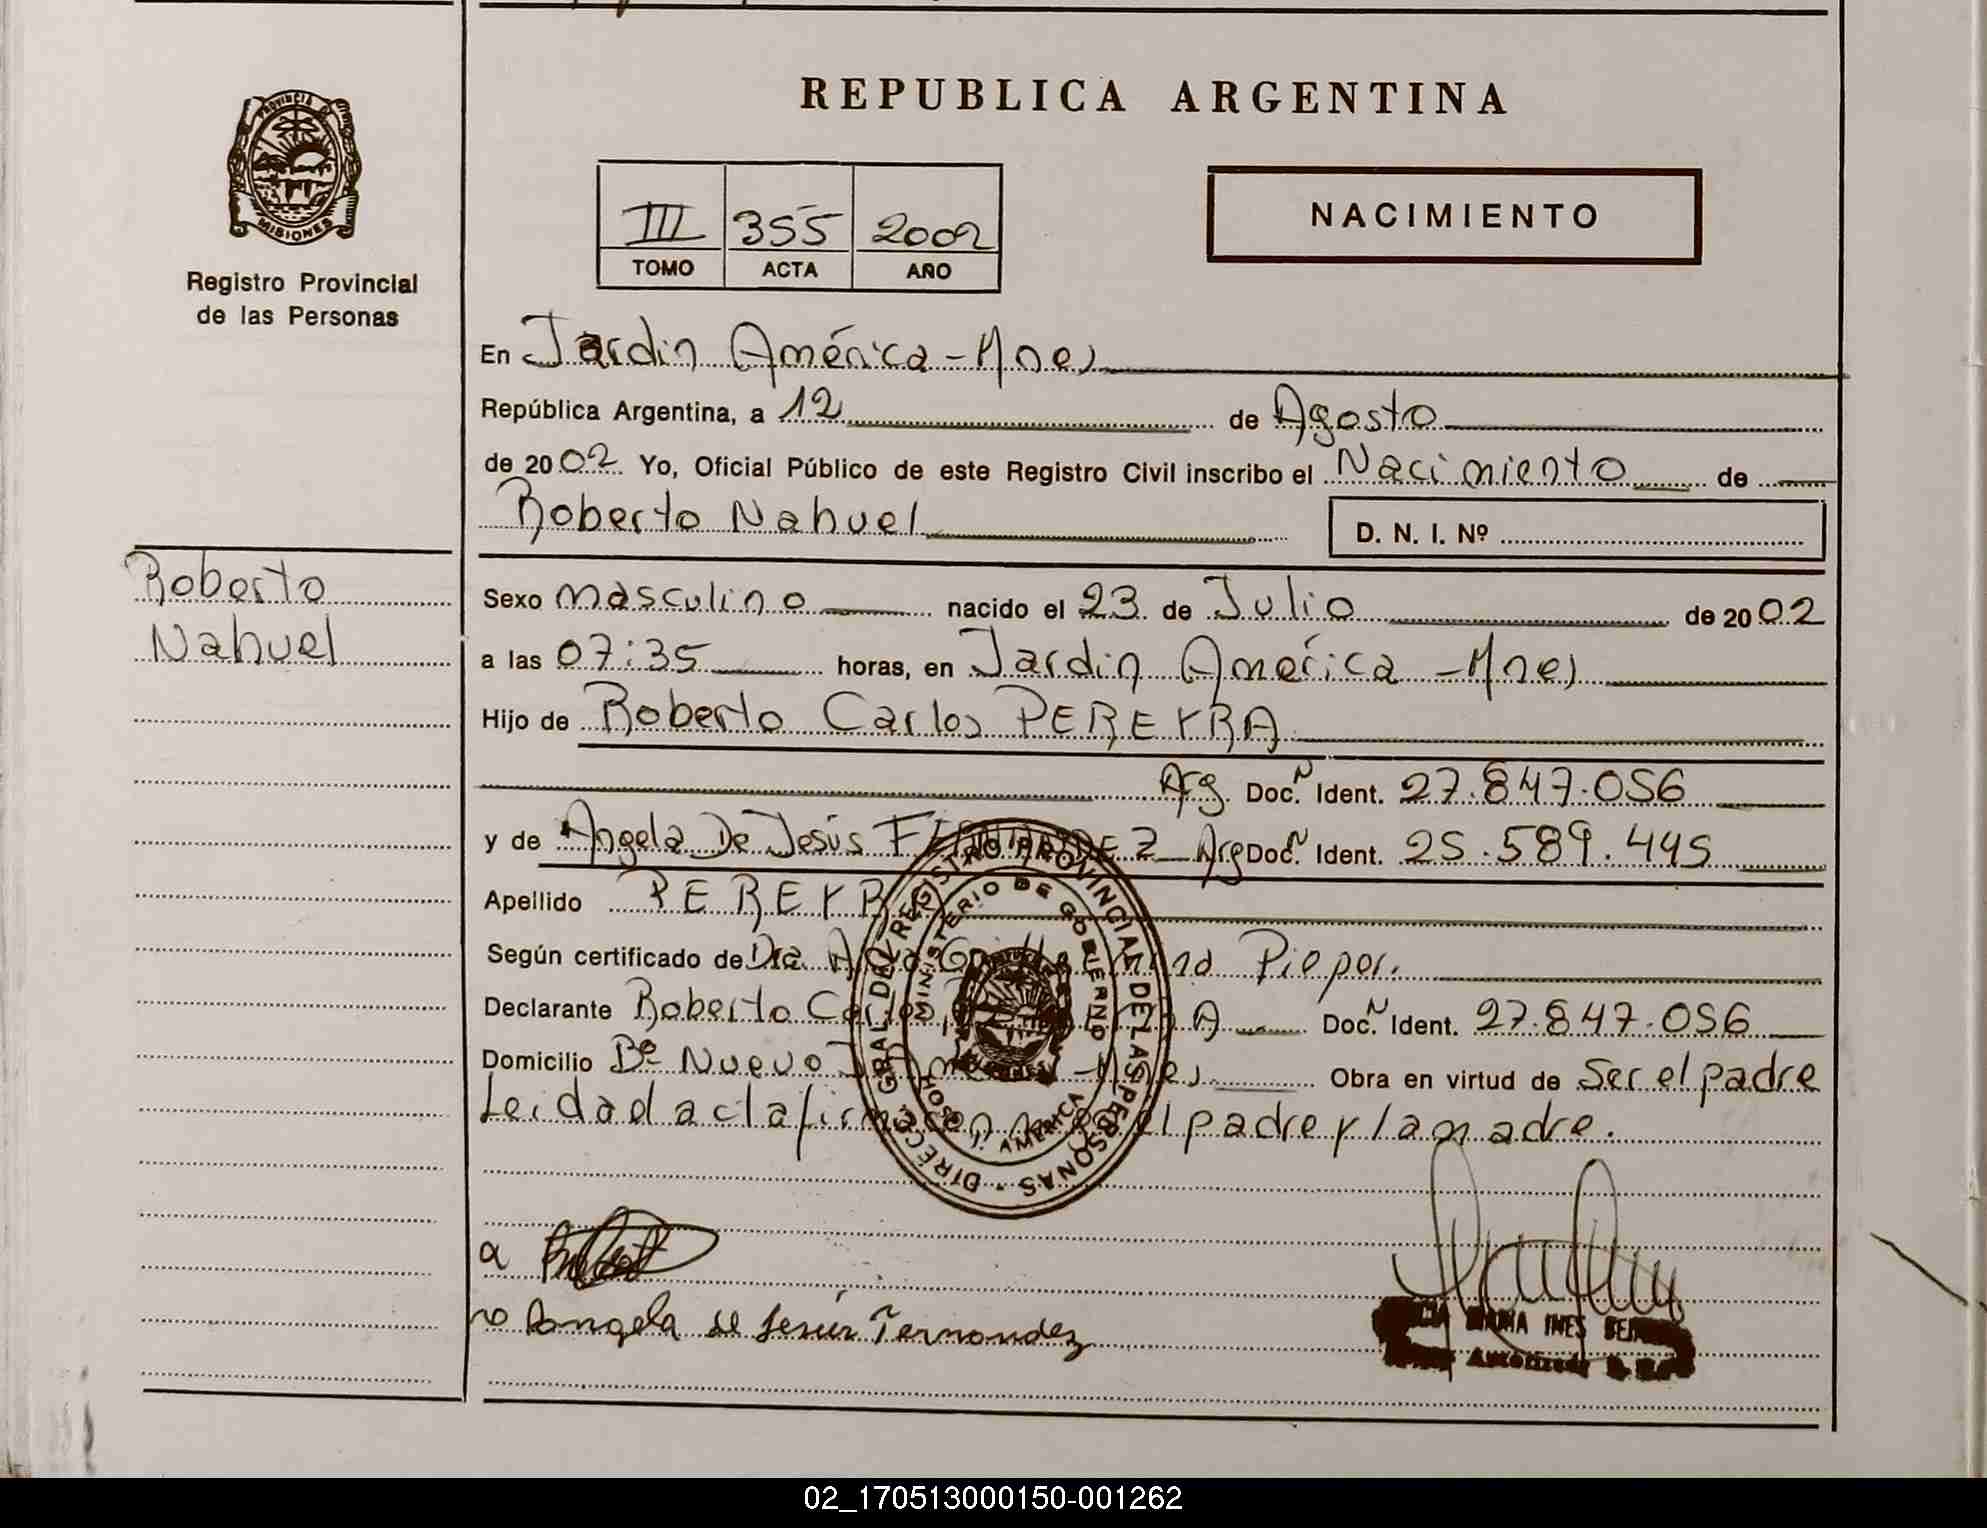 REPUBLICA ARGENTINA
PROVINCIA DE
MISIONES
Registro Provincial
de las Personas
III 355 2002
TOMO ACTA AÑO
NACIMIENTO
En Jardin América - Mnes
República Argentina, a 12 de Agosto
de 2002 Yo, Oficial Público de este Registro Civil inscribo el Nacimiento de
Roberto Nahuel D. N. I. Nº
Roberto
Nahuel
Sexo masculino nacido el 23 de Julio de 2002
a las 07:35 horas, en Jardin América - Mnes
Hijo de Roberto Carlos PEREYRA
Arg. Doc. N Ident. 27.847.056
y de Angela De Jesús FERNANDEZ Arg Doc. N Ident. 25.589.445
Apellido PEREYRA
Según certificado de Dra. Pieper.
Declarante Roberto Carlos Doc. N Ident. 27.847.056
Domicilio Bº Nuevo - Mnes Obra en virtud de Ser el padre
Leida del acta firman el padre y la madre.
DIRECC. GRAL DEL REGISTRO PROVINCIAL DE LAS PERSONAS
MINISTERIO DE GOBIERNO
AMERICA
Angela de Jesús Fernandez
MARIA INES
Autorizada
02_170513000150-001262